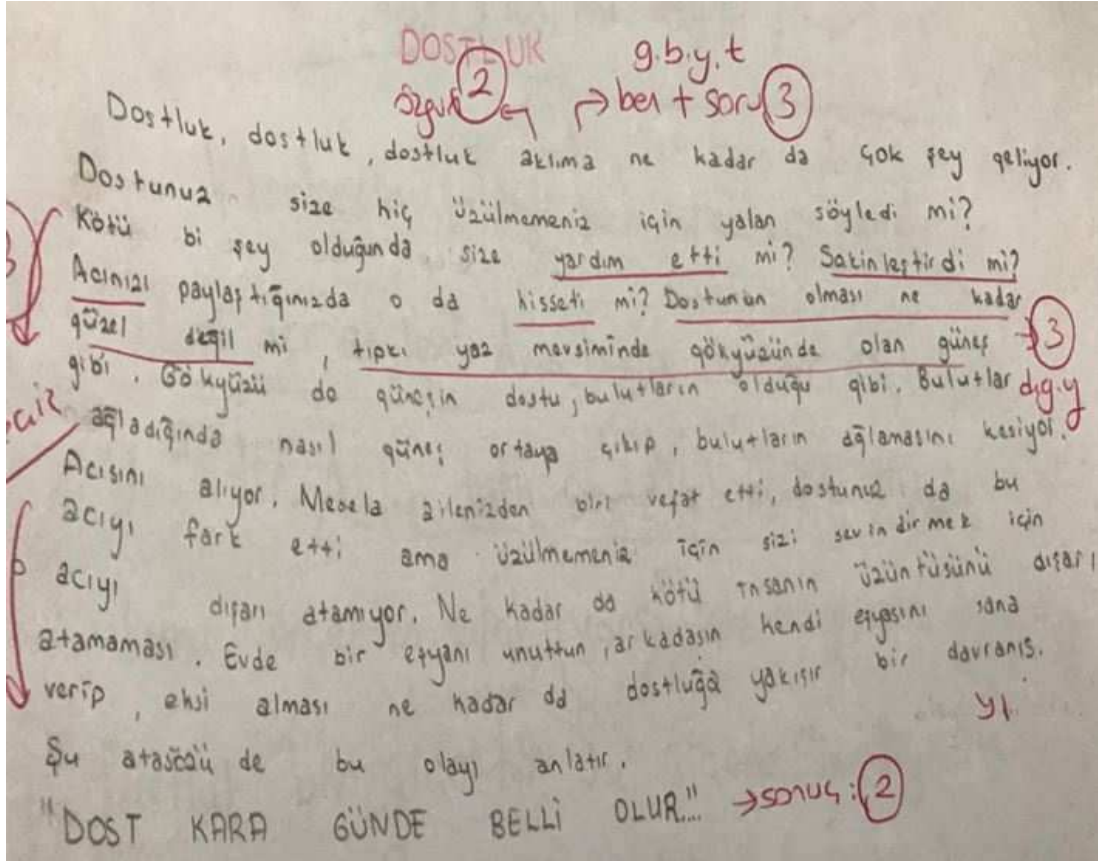 DOSTLUK
g.b.y.t
özgün 2
ben + soru 3
Dostluk, dostluk, dostluk aklıma ne kadar da çok şey geliyor.
Dostunuz size hiç üzülmemeniz için yalan söyledi mi?
Kötü bi şey olduğunda size yardım etti mi? Sakinleştirdi mi?
Acınızı paylaştığınızda o da hisseti mi? Dostunun olması ne kadar
güzel değil mi, tıpkı yaz mevsiminde gökyüzünde olan güneş 3
gibi. Gökyüzü de güneşin dostu, bulutların olduğu gibi. Bulutlar d.g.y
ağladığında nasıl güneş ortaya çıkıp, bulutların ağlamasını kesiyor.
Acısını alıyor. Mesela ailenizden biri vefat etti, dostunuz da bu
acıyı fark etti ama üzülmemeniz için sizi sevindirmek için
acıyı dışarı atamıyor. Ne kadar da kötü insanın üzüntüsünü dışarı
atamaması. Evde bir eşyanı unuttun, arkadaşın kendi eşyasını sana
verip, eksi alması ne kadar da dostluğa yakışır bir davranış.
yı.
Şu atasözü de bu olayı anlatır.
"DOST KARA GÜNDE BELLİ OLUR..." →sonuç: 2